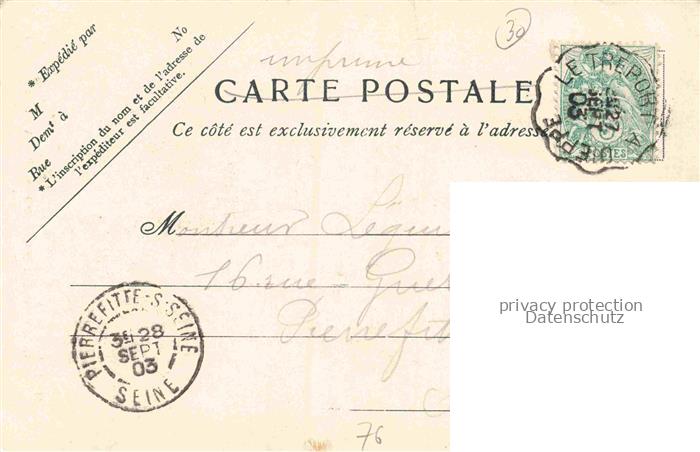 * Expédié par
No
M
Demt à
Rue
* L'inscription du nom et de l'adresse de
l'expéditeur est facultative.
30
imprimé
CARTE POSTALE
Ce côté est exclusivement réservé à l'adresse
LE TREPORT A DIEPPE
27
SEPT
03
Monsieur
16 rue
Pierrefit
PIERREFITTE-S-SEINE
3E 28
SEPT
03
SEINE
76
privacy protection
Datenschutz